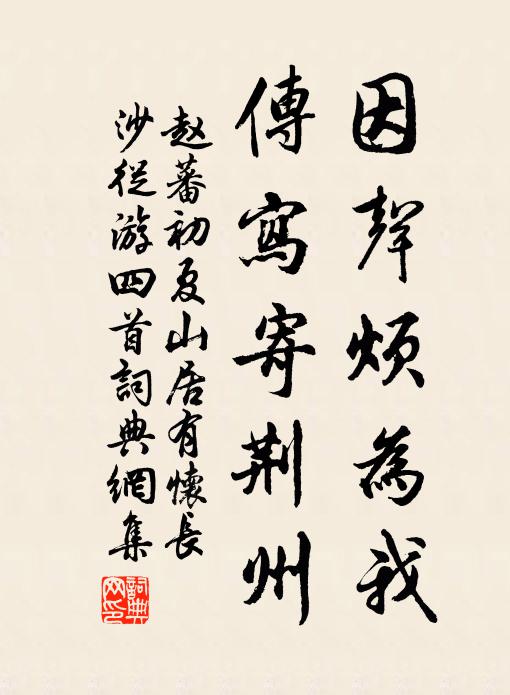 因聲煩為我
傳寫寄荆州
赵蕃初夏山居有懷長
沙從游四首詞典網集
詞典網印